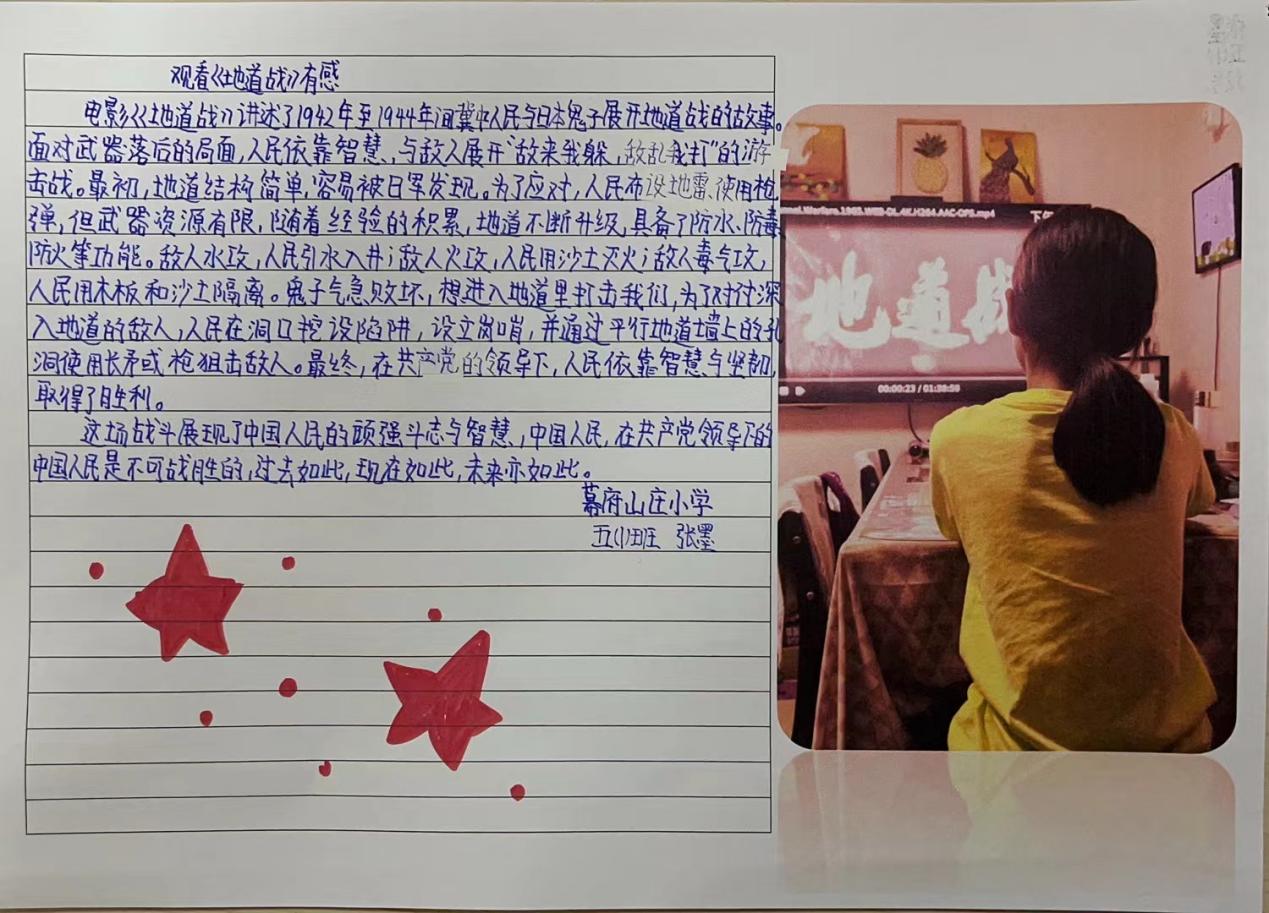 观看《地道战》有感
电影《地道战》讲述了1942年至1944年间冀中人民与日本鬼子展开地道战的故事。
面对武器落后的局面,人民依靠智慧、与敌人展开“敌来我躲,敌乱我打”的游
击战。最初,地道结构简单,容易被日军发现。为了应对,人民布设地雷、使用枪
弹,但武器资源有限,随着经验的积累,地道不断升级,具备了防水、防毒
防火等功能。敌人水攻,人民引水入井;敌人火攻,人民用沙土灭火;敌人毒气攻,
人民用木板和沙土隔离。鬼子气急败坏,想进入地道里打击我们,为了对付深
入地道的敌人,人民在洞口挖设陷阱,设立岗哨,并通过平行地道墙上的孔
洞使用长矛或枪狙击敌人。最终,在共产党的领导下,人民依靠智慧与坚韧,
取得了胜利。
这场战斗展现了中国人民的顽强斗志与智慧,中国人民,在共产党领导下的
中国人民是不可战胜的,过去如此,现在如此,未来亦如此。
幕府山庄小学
五(1)班 张墨
nel.Warfare.1965.WEB-DL.4K.H264.AAC-OPS.mp4
下午
地道战
00:00:23 / 01:38:59